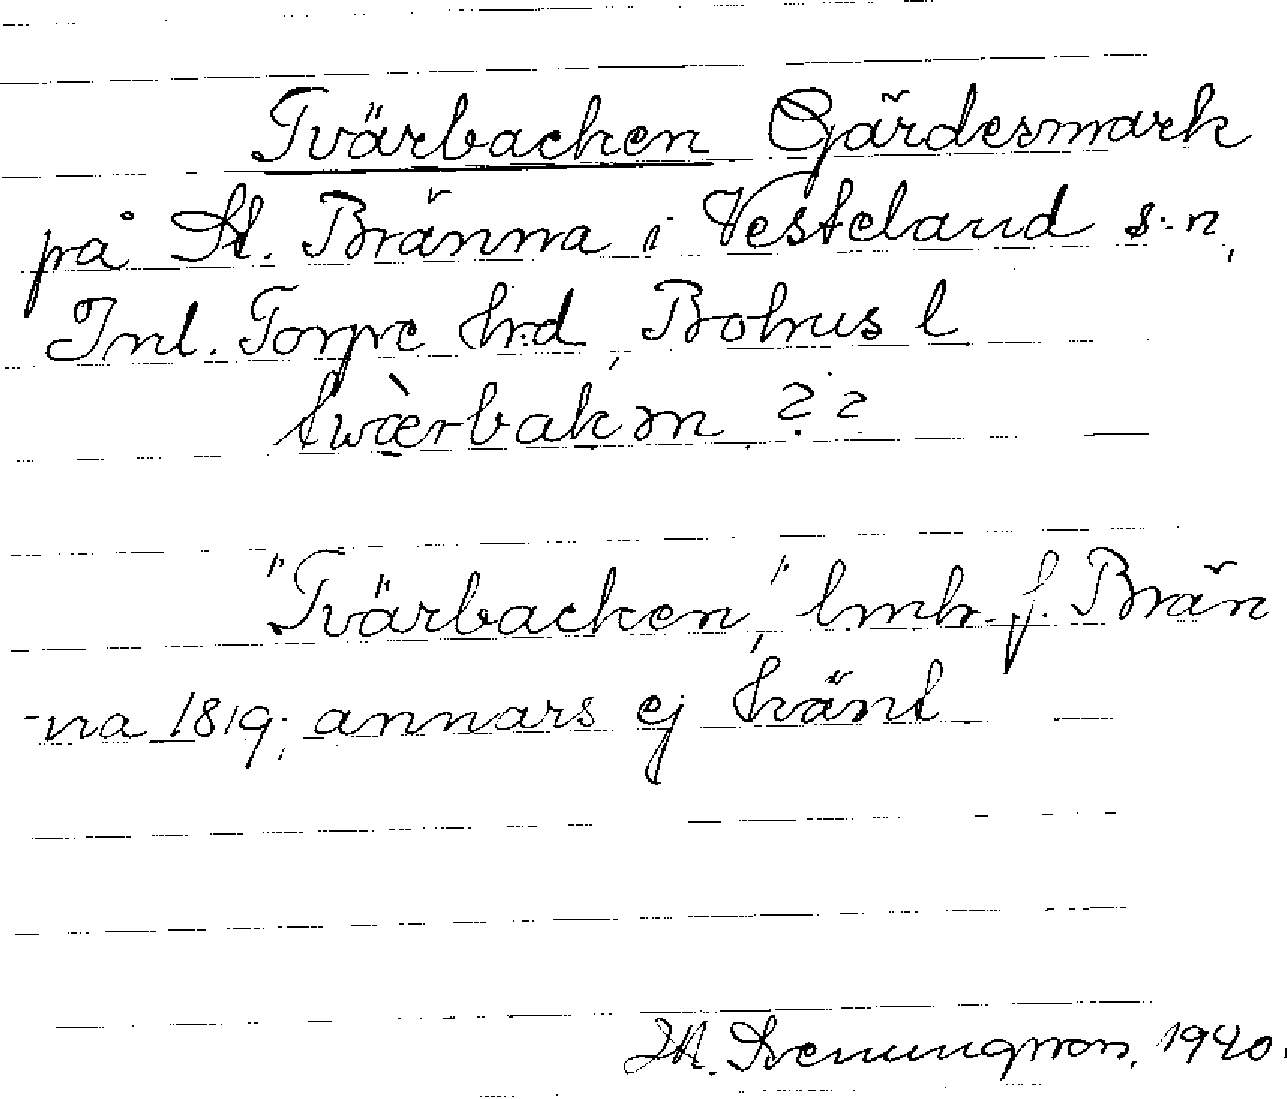 Tvärbacken Gärdesmark
på St. Bränna i Vesteland s:n,
Inl. Torpe hrd, Bohus l
twærbakən ??
"Tvärbacken," lmh. f. Brän
-na 1819; annars ej känt
1940.